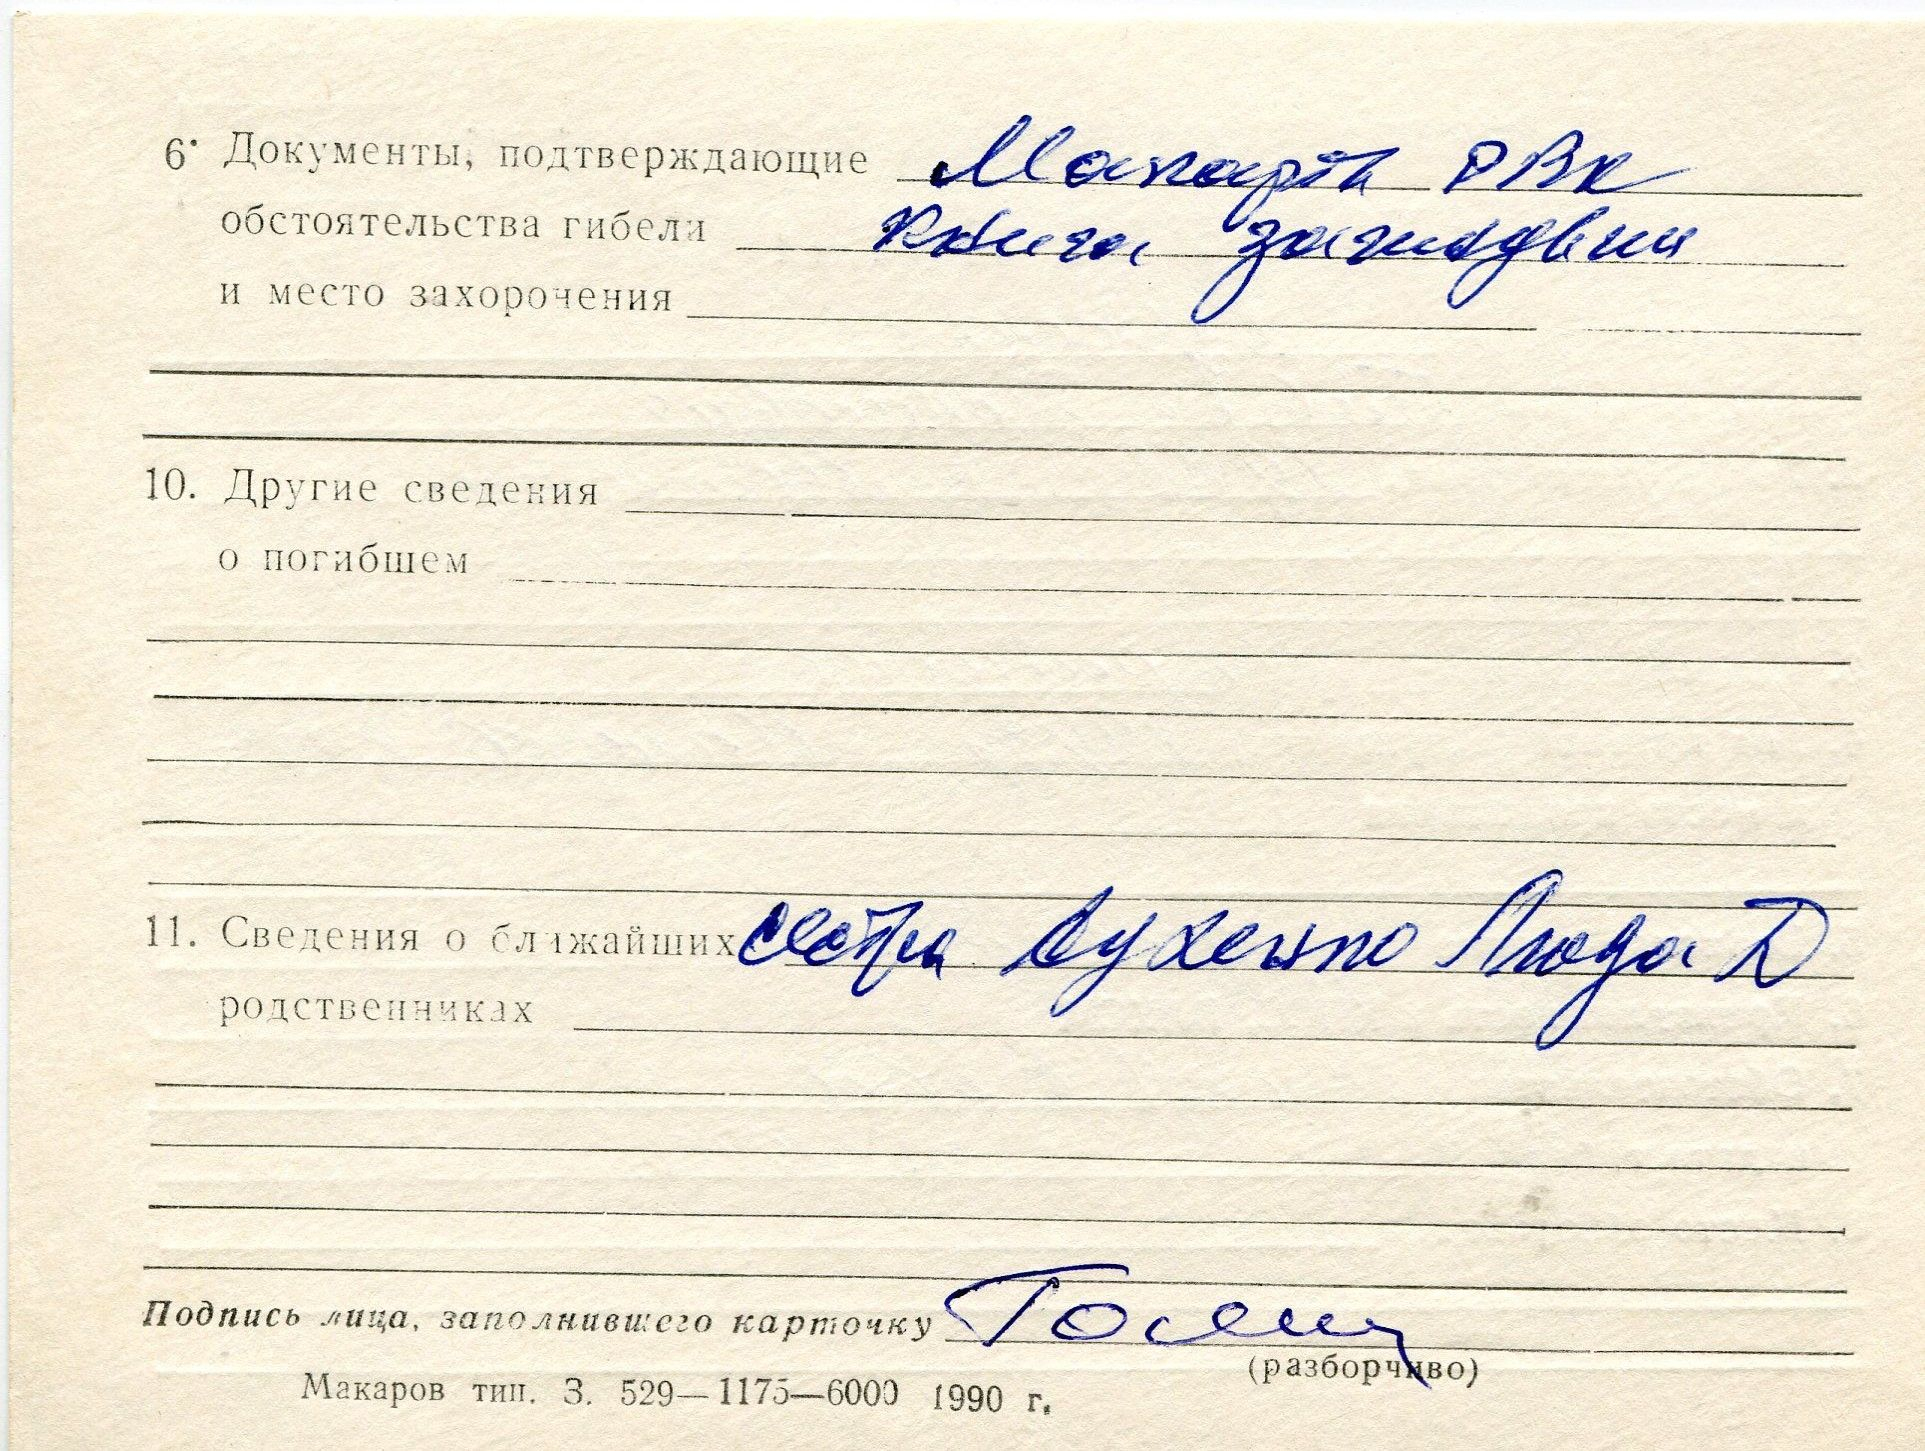 6. Документы, подтверждающие Макарів РВК
обстоятельства гибели Книга
и место захоронения
10. Другие сведения
о погибшем
11. Сведения о ближайших сестра Люда Д
родственниках
Подпись лица, заполнившего карточку
(разборчиво)
Макаров тип. З. 529—1175—6000 1990 г.